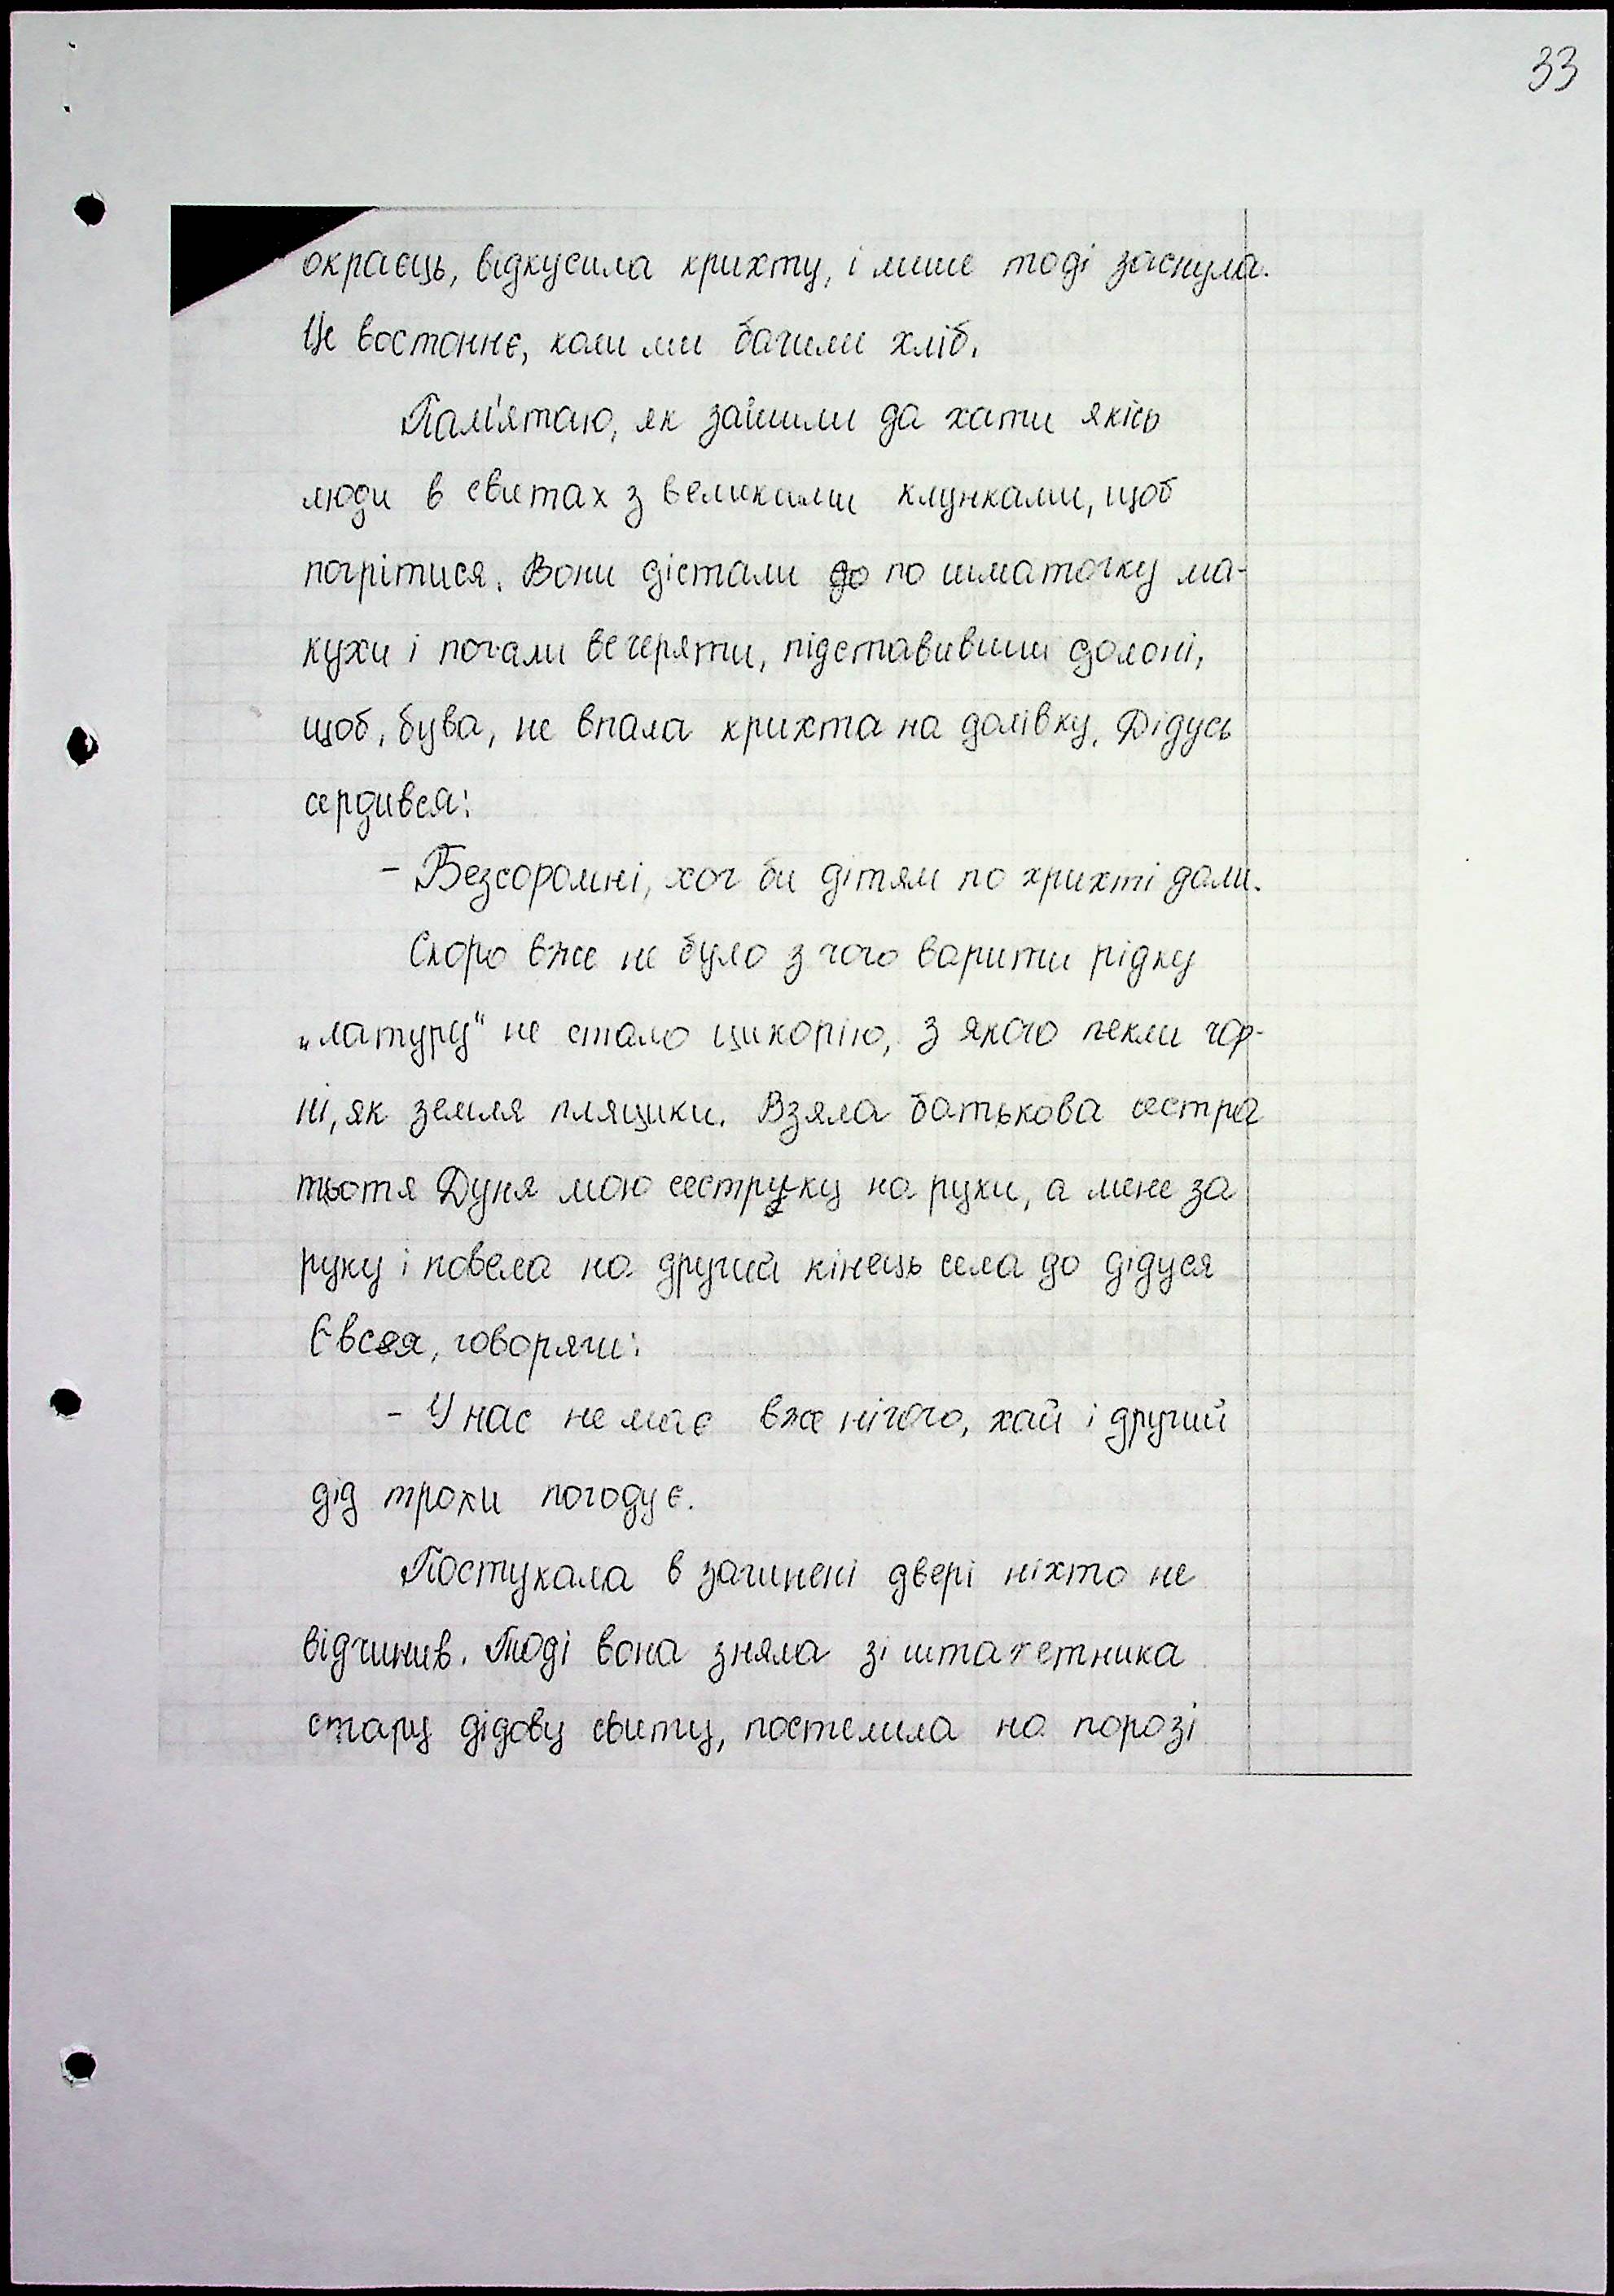 33
окраєць, відкусила крихту, і лише тоді заснула.
Це востоннє, коли ми бачили хліб.
Пам'ятаю, як зайшли да хати якісь
люди в свитах з великими клунками, щоб
погрітися. Вони дістали до по шматочку ма-
кухи і почали вечеряти, підставивши долоні,
щоб, бува, не впала крихта на долівку. Дідусь
сердився:
- Безсоромні, хоч би дітям по крихті дали.
Скоро вже не було з чого варити рідку
„латуру" не стало цикорію, з якого пекли чор-
ні, як земля пляцики. Взяла батькова сестра
тьотя Дуня мою сеструку на руки, а мене за
руку і повела на другий кінець села до дідуся
Євсея, говорячи:
- У нас не має вже нічого, хай і другий
дід трохи погодує.
Постукала в зачинені двері ніхто не
відчинив. Тоді вона зняла зі штахетника
стару дідову свиту, постелила на порозі